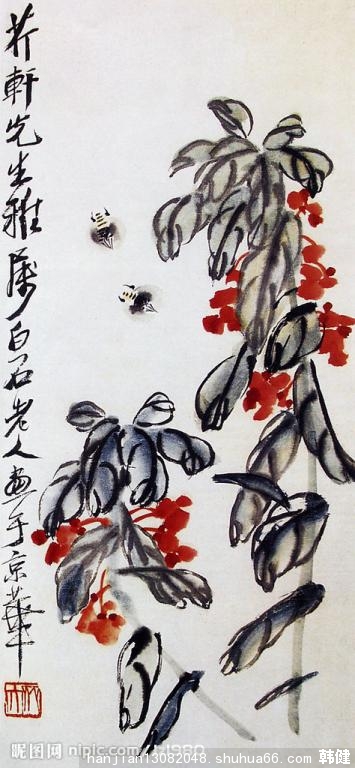 芥軒先生雅屬白石老人畫于京華
昵图网 nipic.com/
hanjian13082048.shuhua66.com 韩健